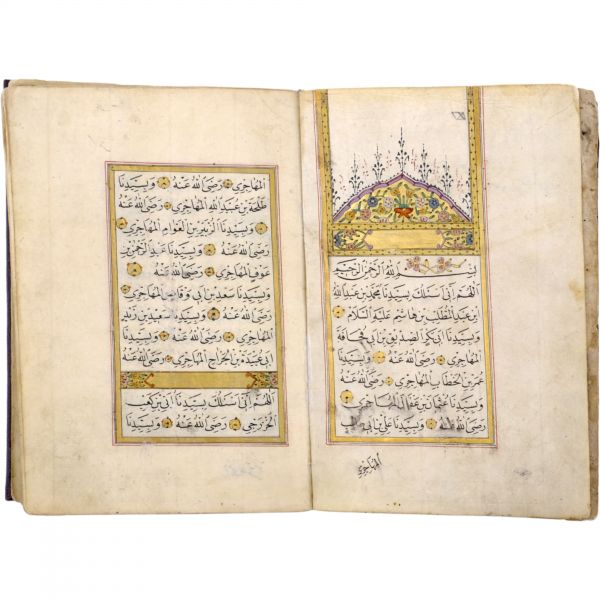 بسم الله الرحمن الرحيم
اللهم اني اسئلك بسيدنا محمد بن عبد الله
بن عبد المطلب بن هاشم عليه السلام
وبسيدنا ابي بكر الصديق بن ابي قحافة
المهاجري رضى الله عنه وبسيدنا
عمر بن الخطاب المهاجري رضى الله عنه
وبسيدنا عثمان بن عفان المهاجري
رضى الله عنه وبسيدنا علي بن ابي طالب
المهاجري
المهاجري رضى الله عنه وبسيدنا
طلحة بن عبيد الله المهاجري رضى الله عنه
وبسيدنا الزبير بن العوام المهاجري
رضى الله عنه وبسيدنا عبد الرحمن بن
عوف المهاجري رضى الله عنه
وبسيدنا سعد بن ابي وقاص المهاجري
رضى الله عنه وبسيدنا سعيد بن زيد
المهاجري رضى الله عنه وبسيدنا
ابي عبيدة بن الجراح المهاجري رضى الله عنه
اللهم اني اسئلك بسيدنا ابي بن كعب
الخزرجي رضى الله عنه وبسيدنا